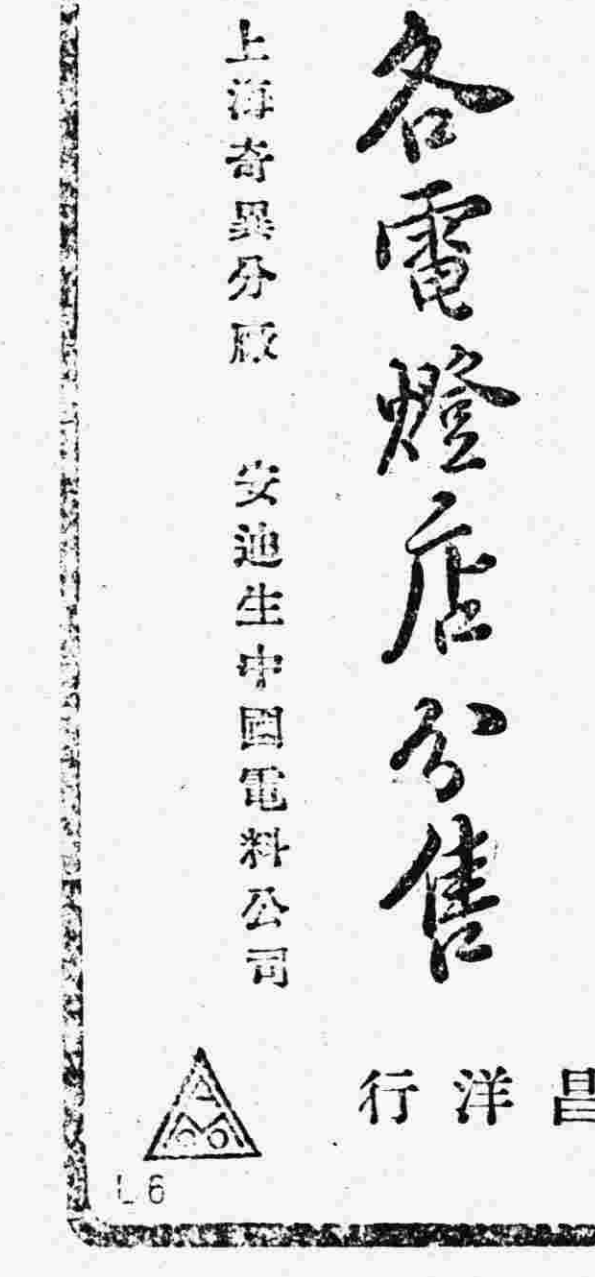 各電燈店分售
上海奇異分廠 安迪生中國電料公司
昌洋行
L6